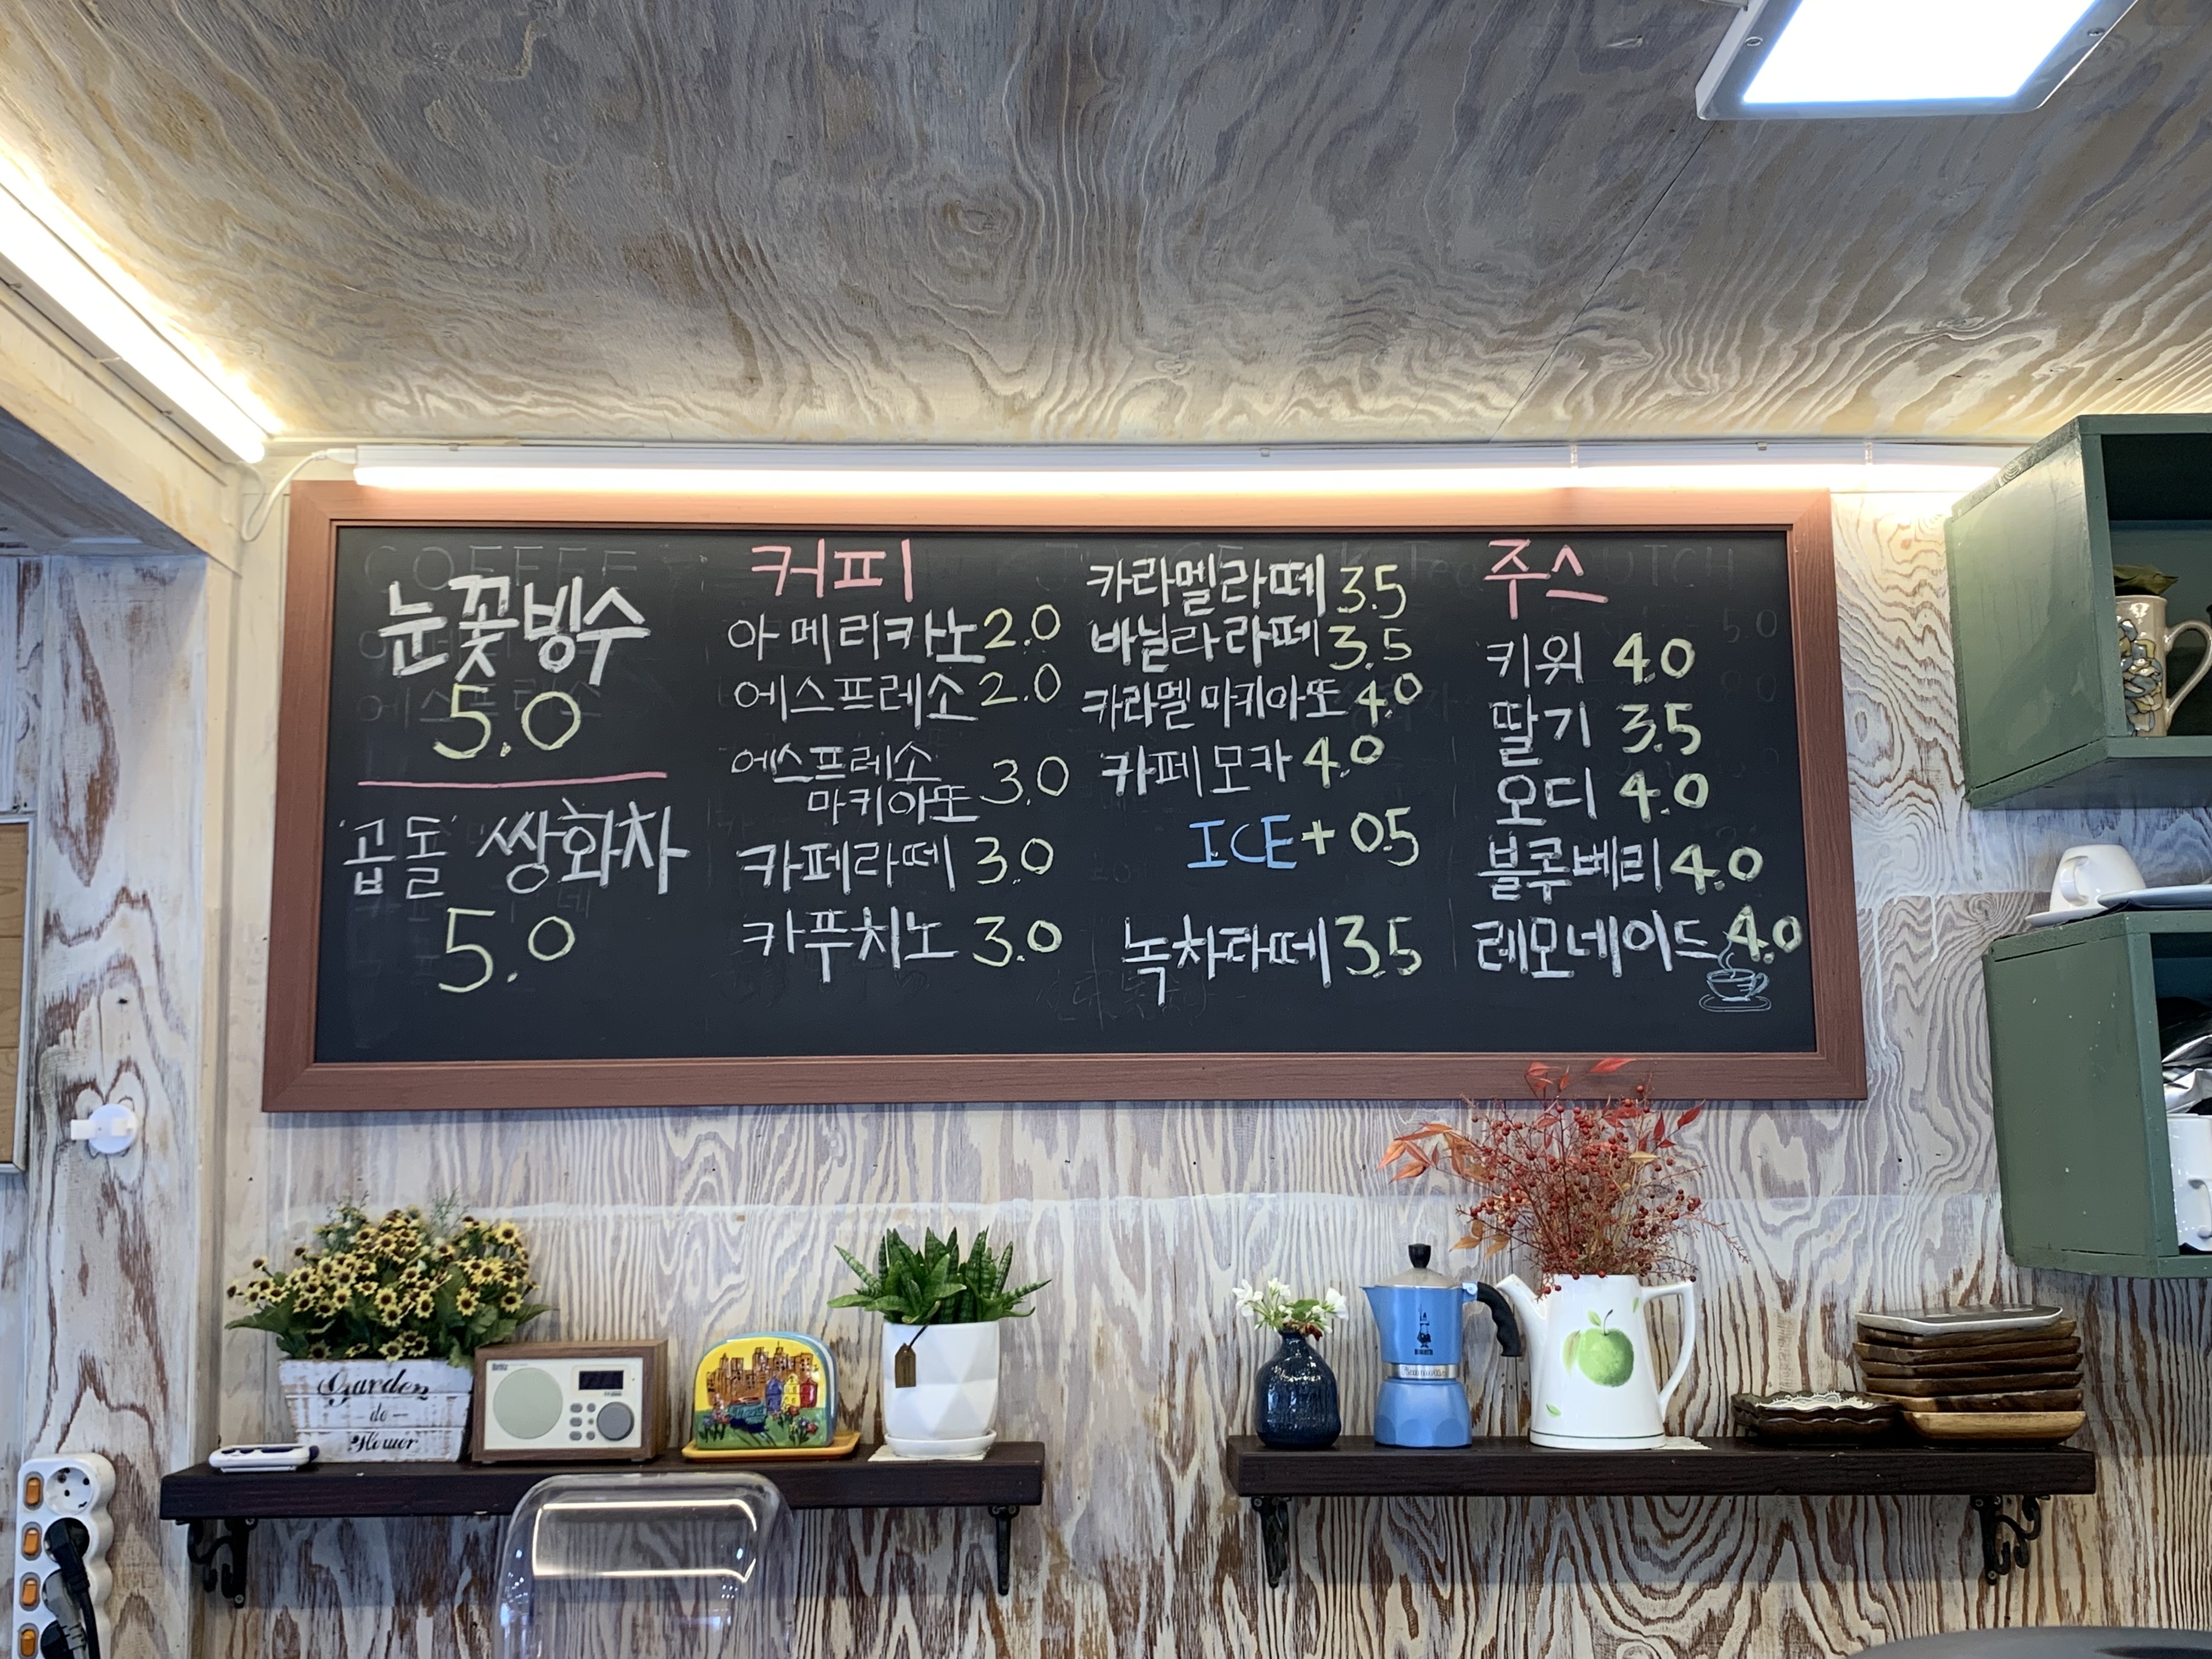 눈꽃빙수
5.0
'곱돌' 쌍화차
5.0
커피
아메리카노 2.0
에스프레소 2.0
에스프레소
마키아또 3.0
카페라떼 3.0
카푸치노 3.0
카라멜라떼 3.5
바닐라라떼 3.5
카라멜마키아또 4.0
카페모카 4.0
ICE + 0.5
녹차라떼 3.5
주스
키위 4.0
딸기 3.5
오디 4.0
블루베리 4.0
레모네이드 4.0
Garden
de
Flower